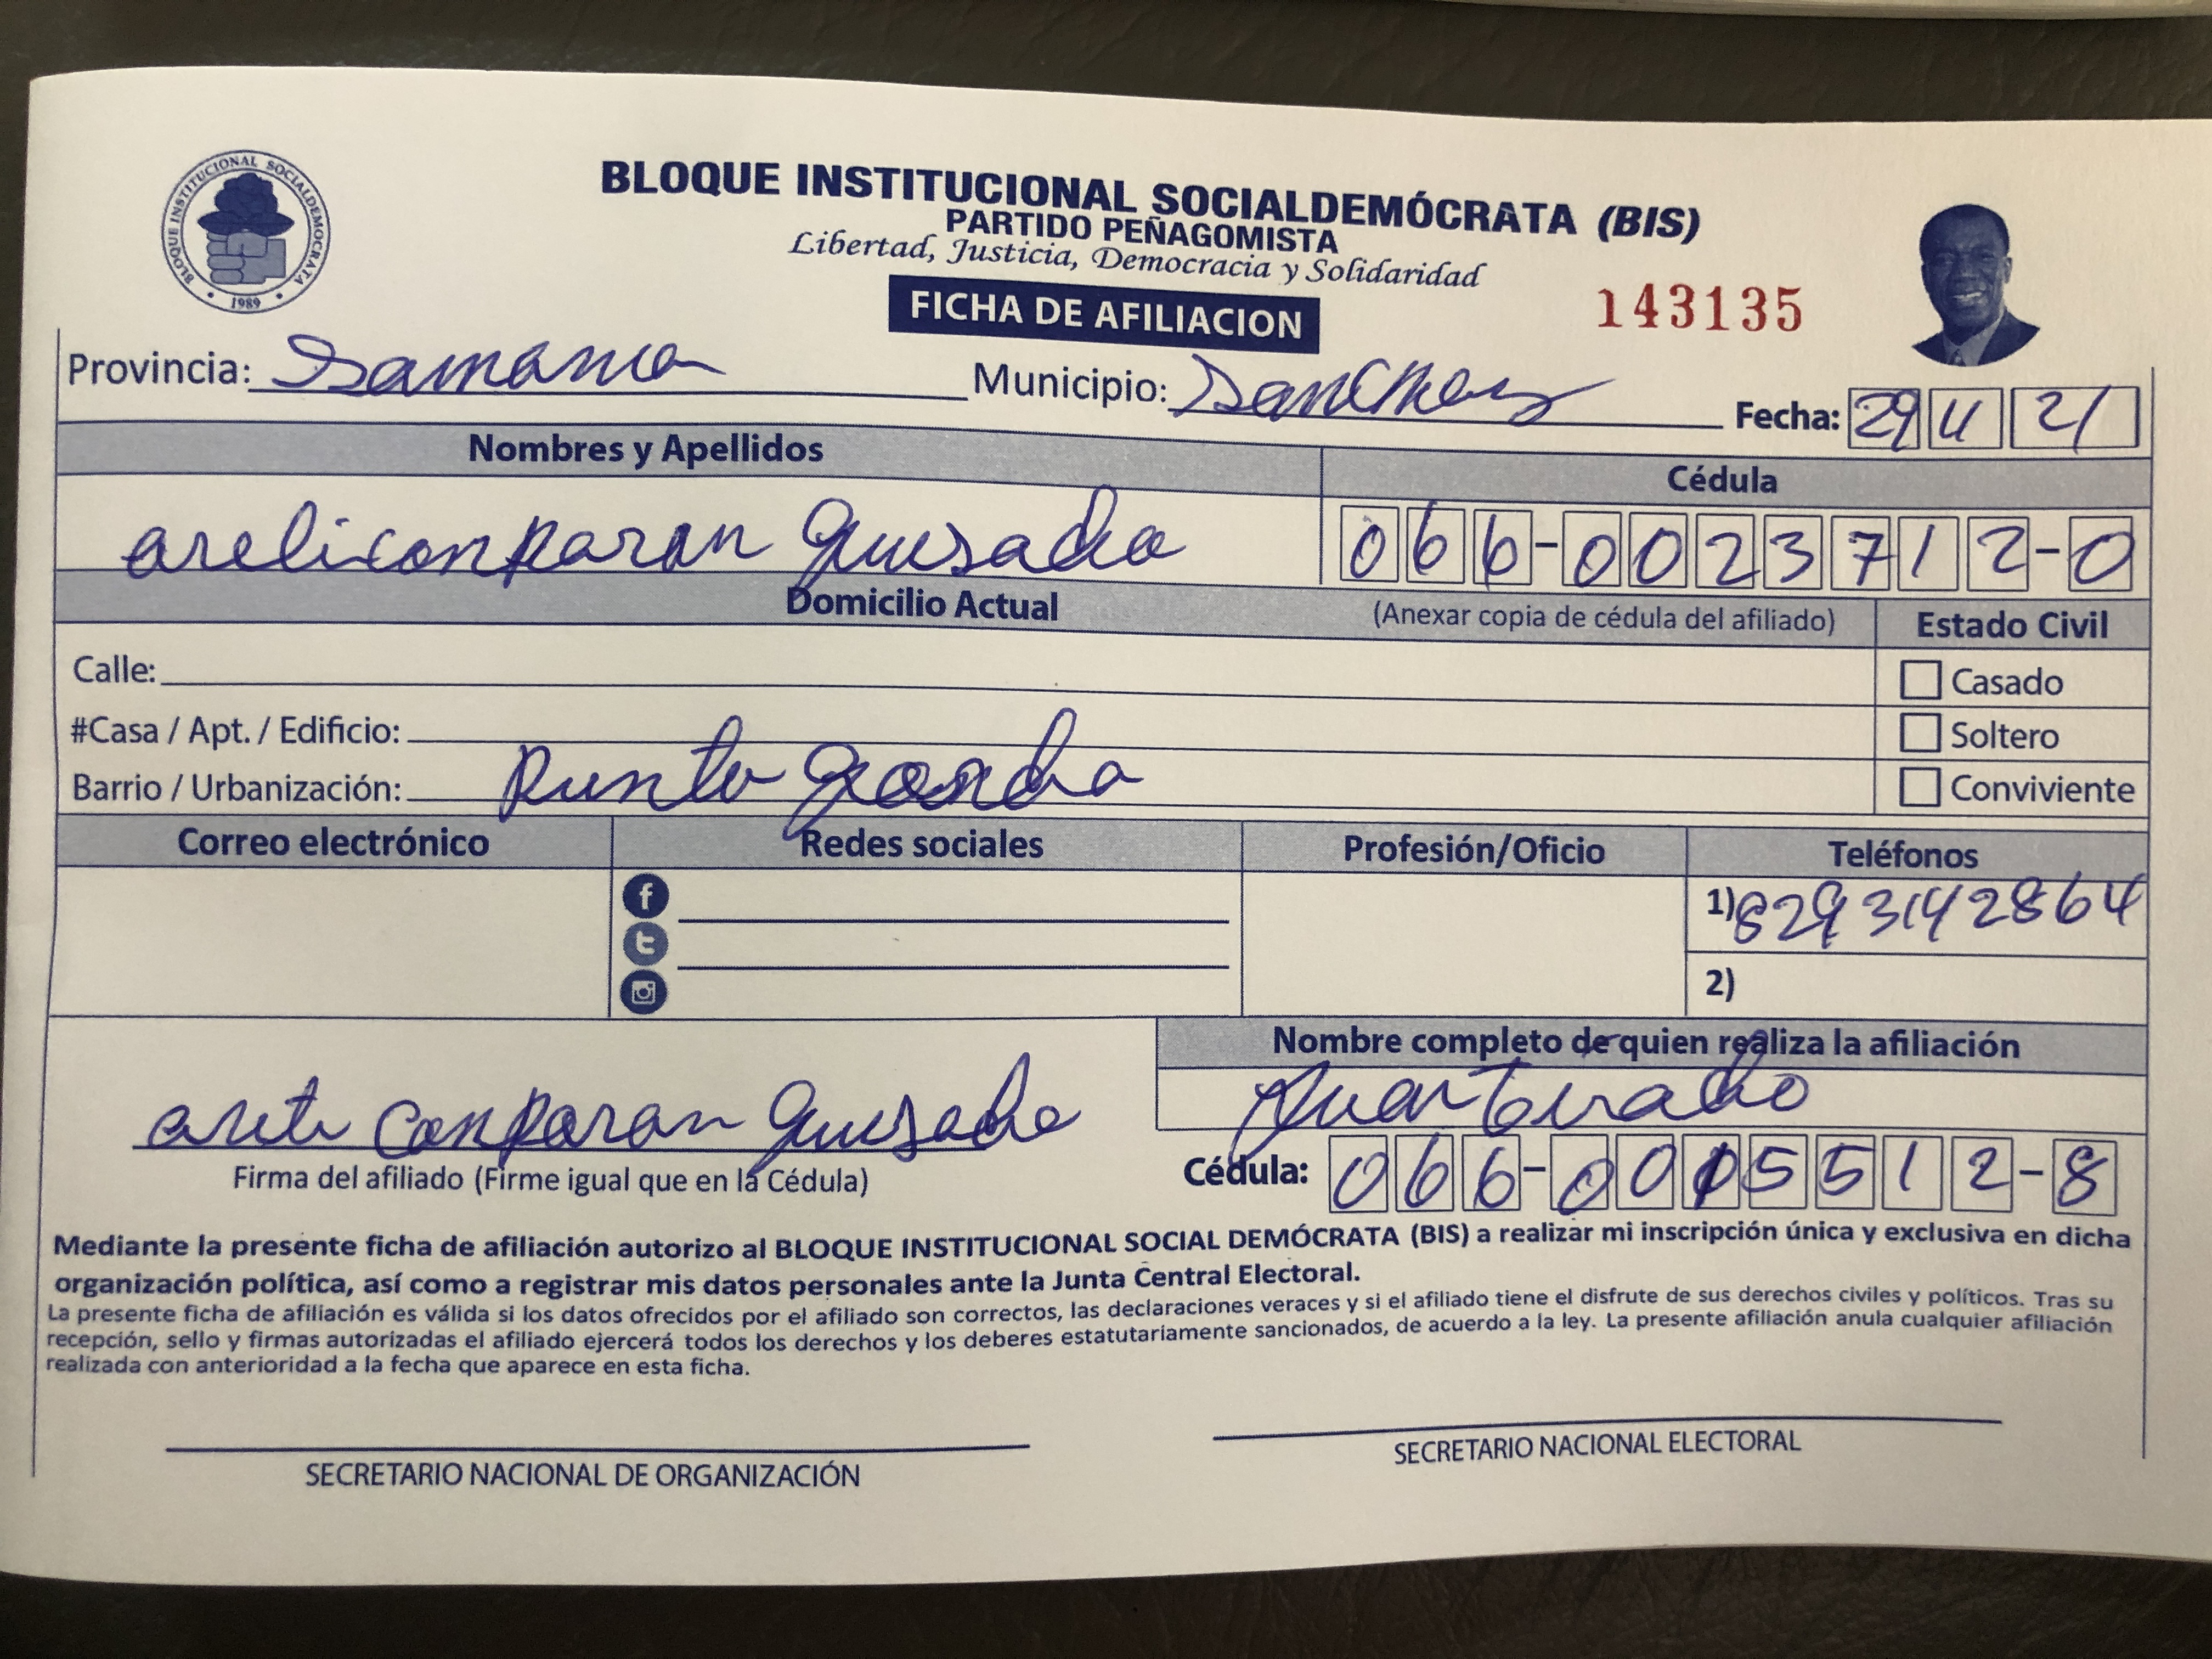 BLOQUE INSTITUCIONAL SOCIALDEMOCRATA
1989
BLOQUE INSTITUCIONAL SOCIALDEMÓCRATA (BIS)
PARTIDO PEÑAGOMISTA
Libertad, Justicia, Democracia y Solidaridad
FICHA DE AFILIACION
143135
Provincia: Samana Municipio: Sanchez Fecha: 29 11 21
Nombres y Apellidos Cédula
areli conparan Quesada 066-0023712-0
Domicilio Actual (Anexar copia de cédula del afiliado) Estado Civil
Calle: Casado
#Casa / Apt. / Edificio: Soltero
Barrio / Urbanización: Punta gorda Conviviente
Correo electrónico Redes sociales Profesión/Oficio Teléfonos
1) 8293142864
2)
Nombre completo de quien realiza la afiliación
Juan
conparan Quesada
Firma del afiliado (Firme igual que en la Cédula) Cédula: 066-0015512-8
Mediante la presente ficha de afiliación autorizo al BLOQUE INSTITUCIONAL SOCIAL DEMÓCRATA (BIS) a realizar mi inscripción única y exclusiva en dicha
organización política, así como a registrar mis datos personales ante la Junta Central Electoral.
La presente ficha de afiliación es válida si los datos ofrecidos por el afiliado son correctos, las declaraciones veraces y si el afiliado tiene el disfrute de sus derechos civiles y políticos. Tras su
recepción, sello y firmas autorizadas el afiliado ejercerá todos los derechos y los deberes estatutariamente sancionados, de acuerdo a la ley. La presente afiliación anula cualquier afiliación
realizada con anterioridad a la fecha que aparece en esta ficha.
SECRETARIO NACIONAL DE ORGANIZACIÓN SECRETARIO NACIONAL ELECTORAL